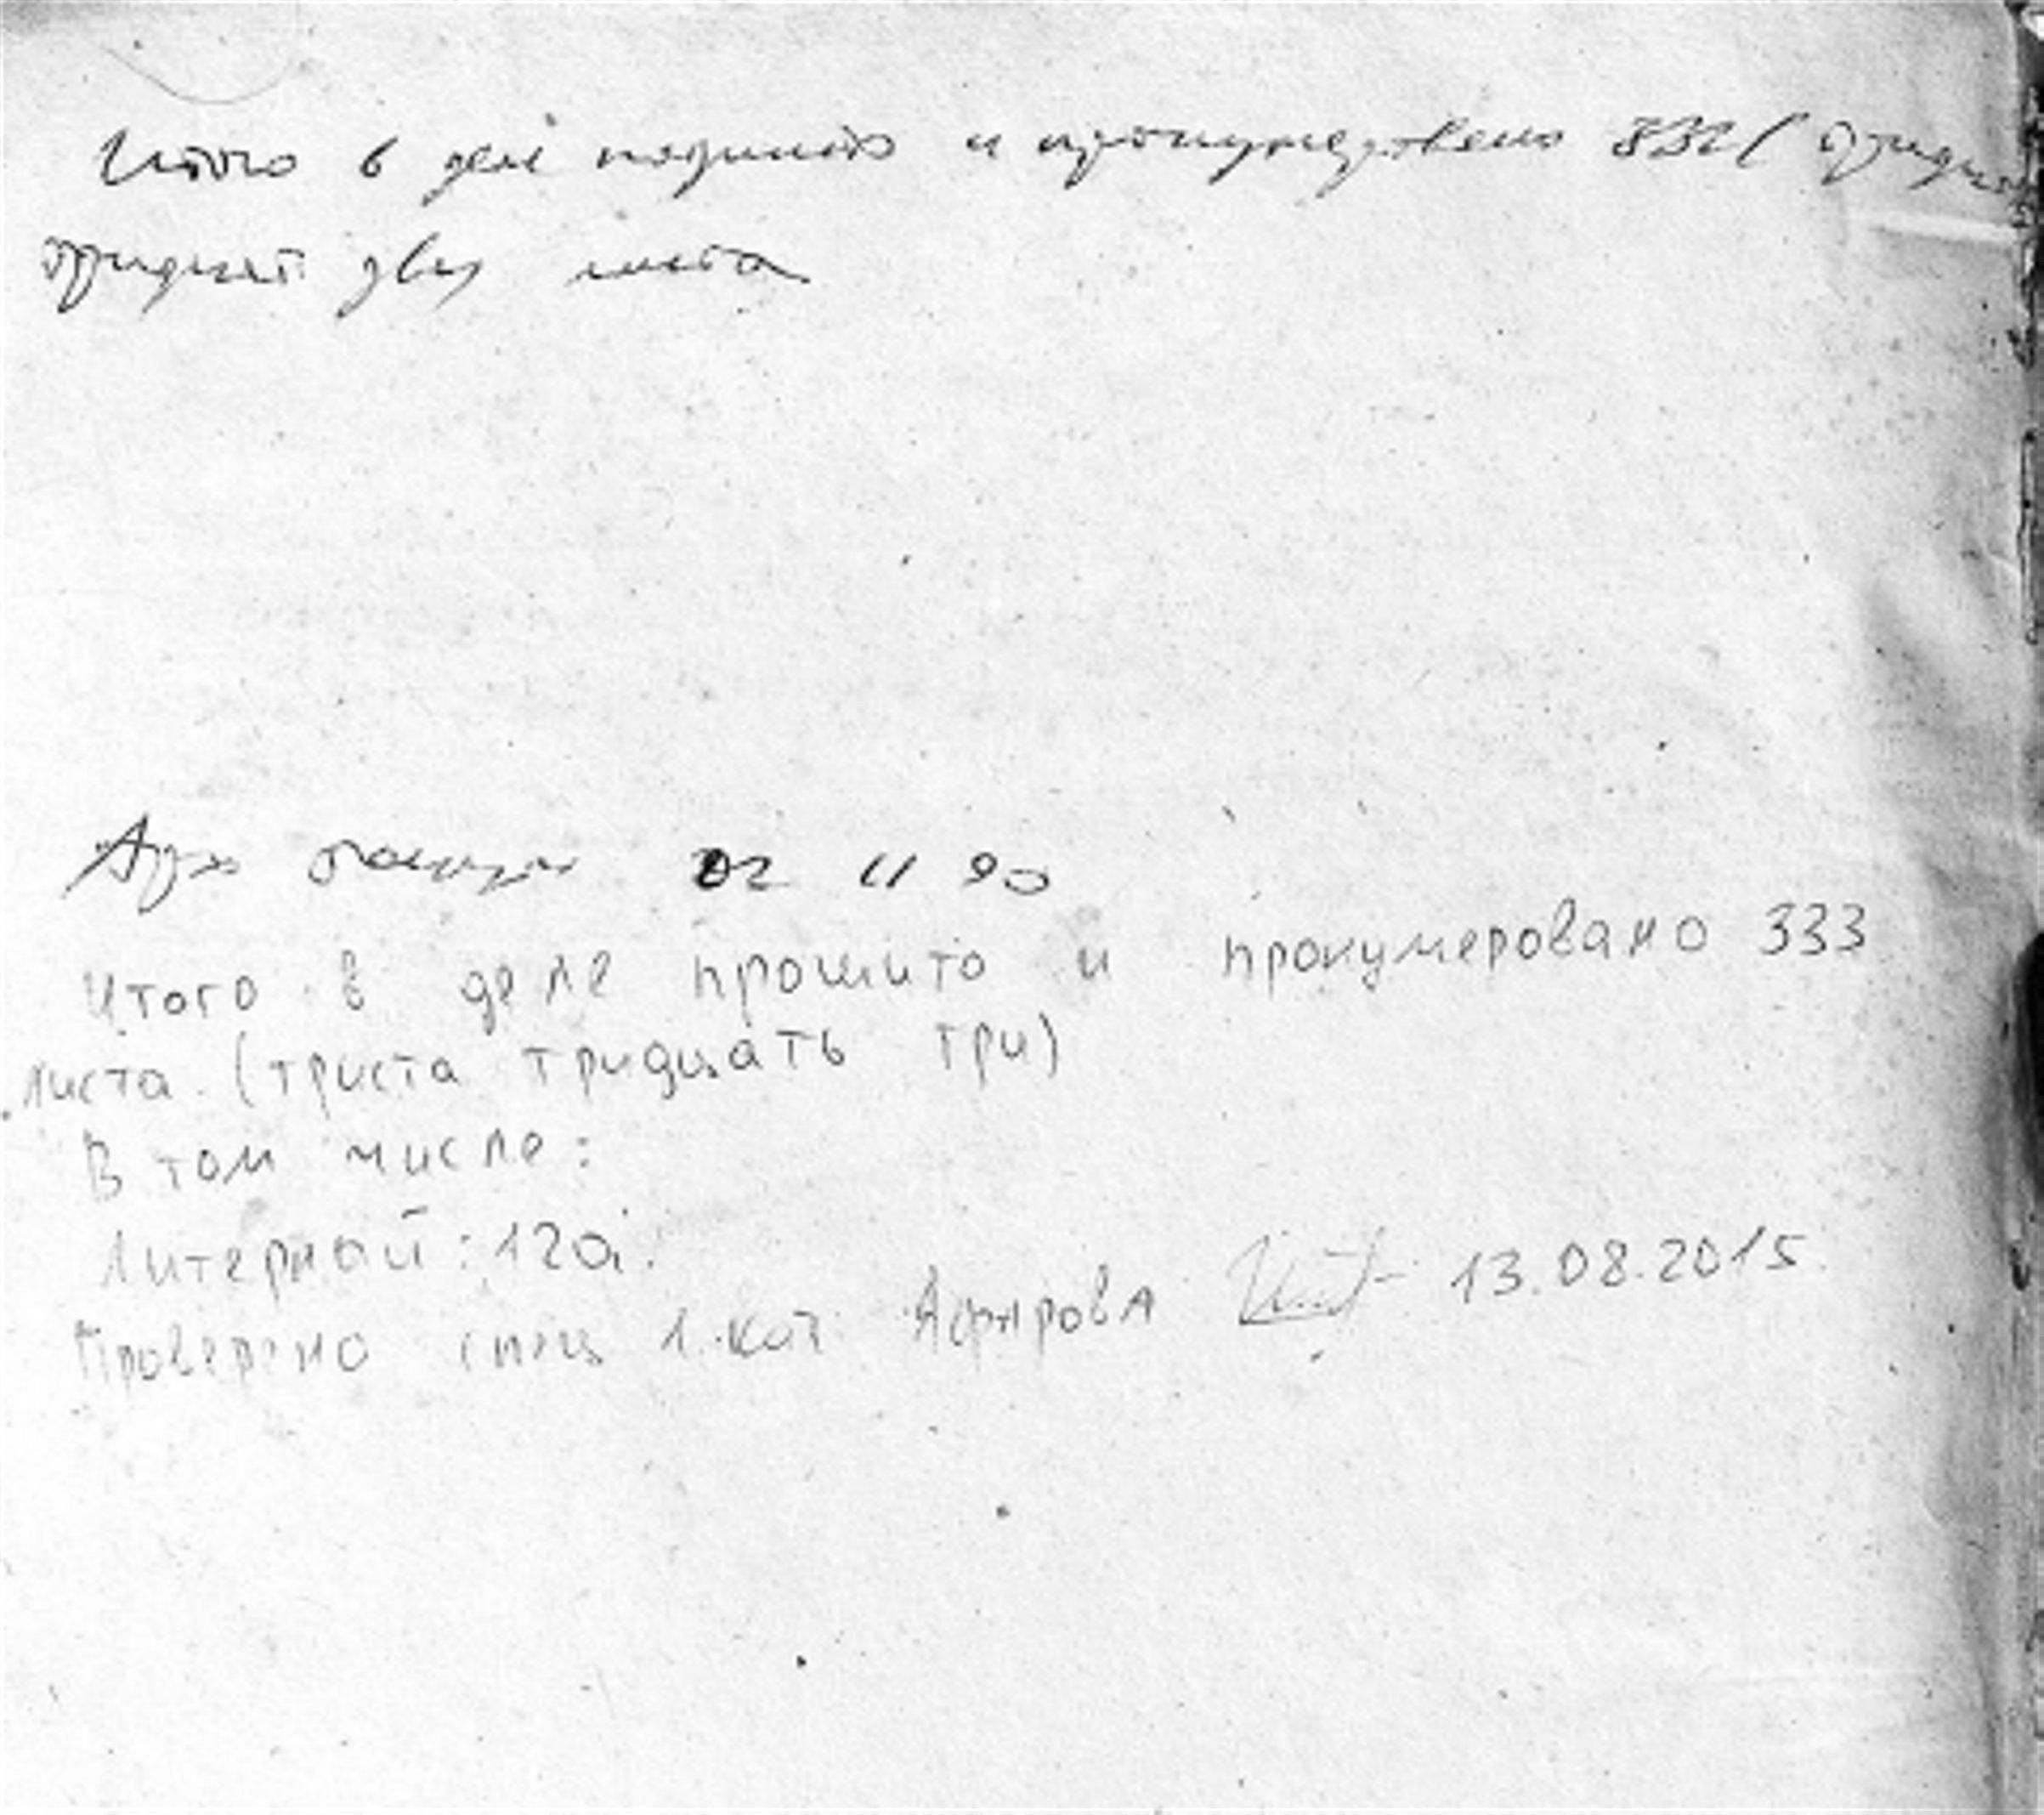 Итого в деле подшито и пронумеровано 332 (
тридцать два листа
02 11 90
Итого в деле прошито и пронумеровано 333
листа. (триста тридцать три)
В том числе:
Литерной: 12а.
Проверено спец 1 кат 13.08.2015